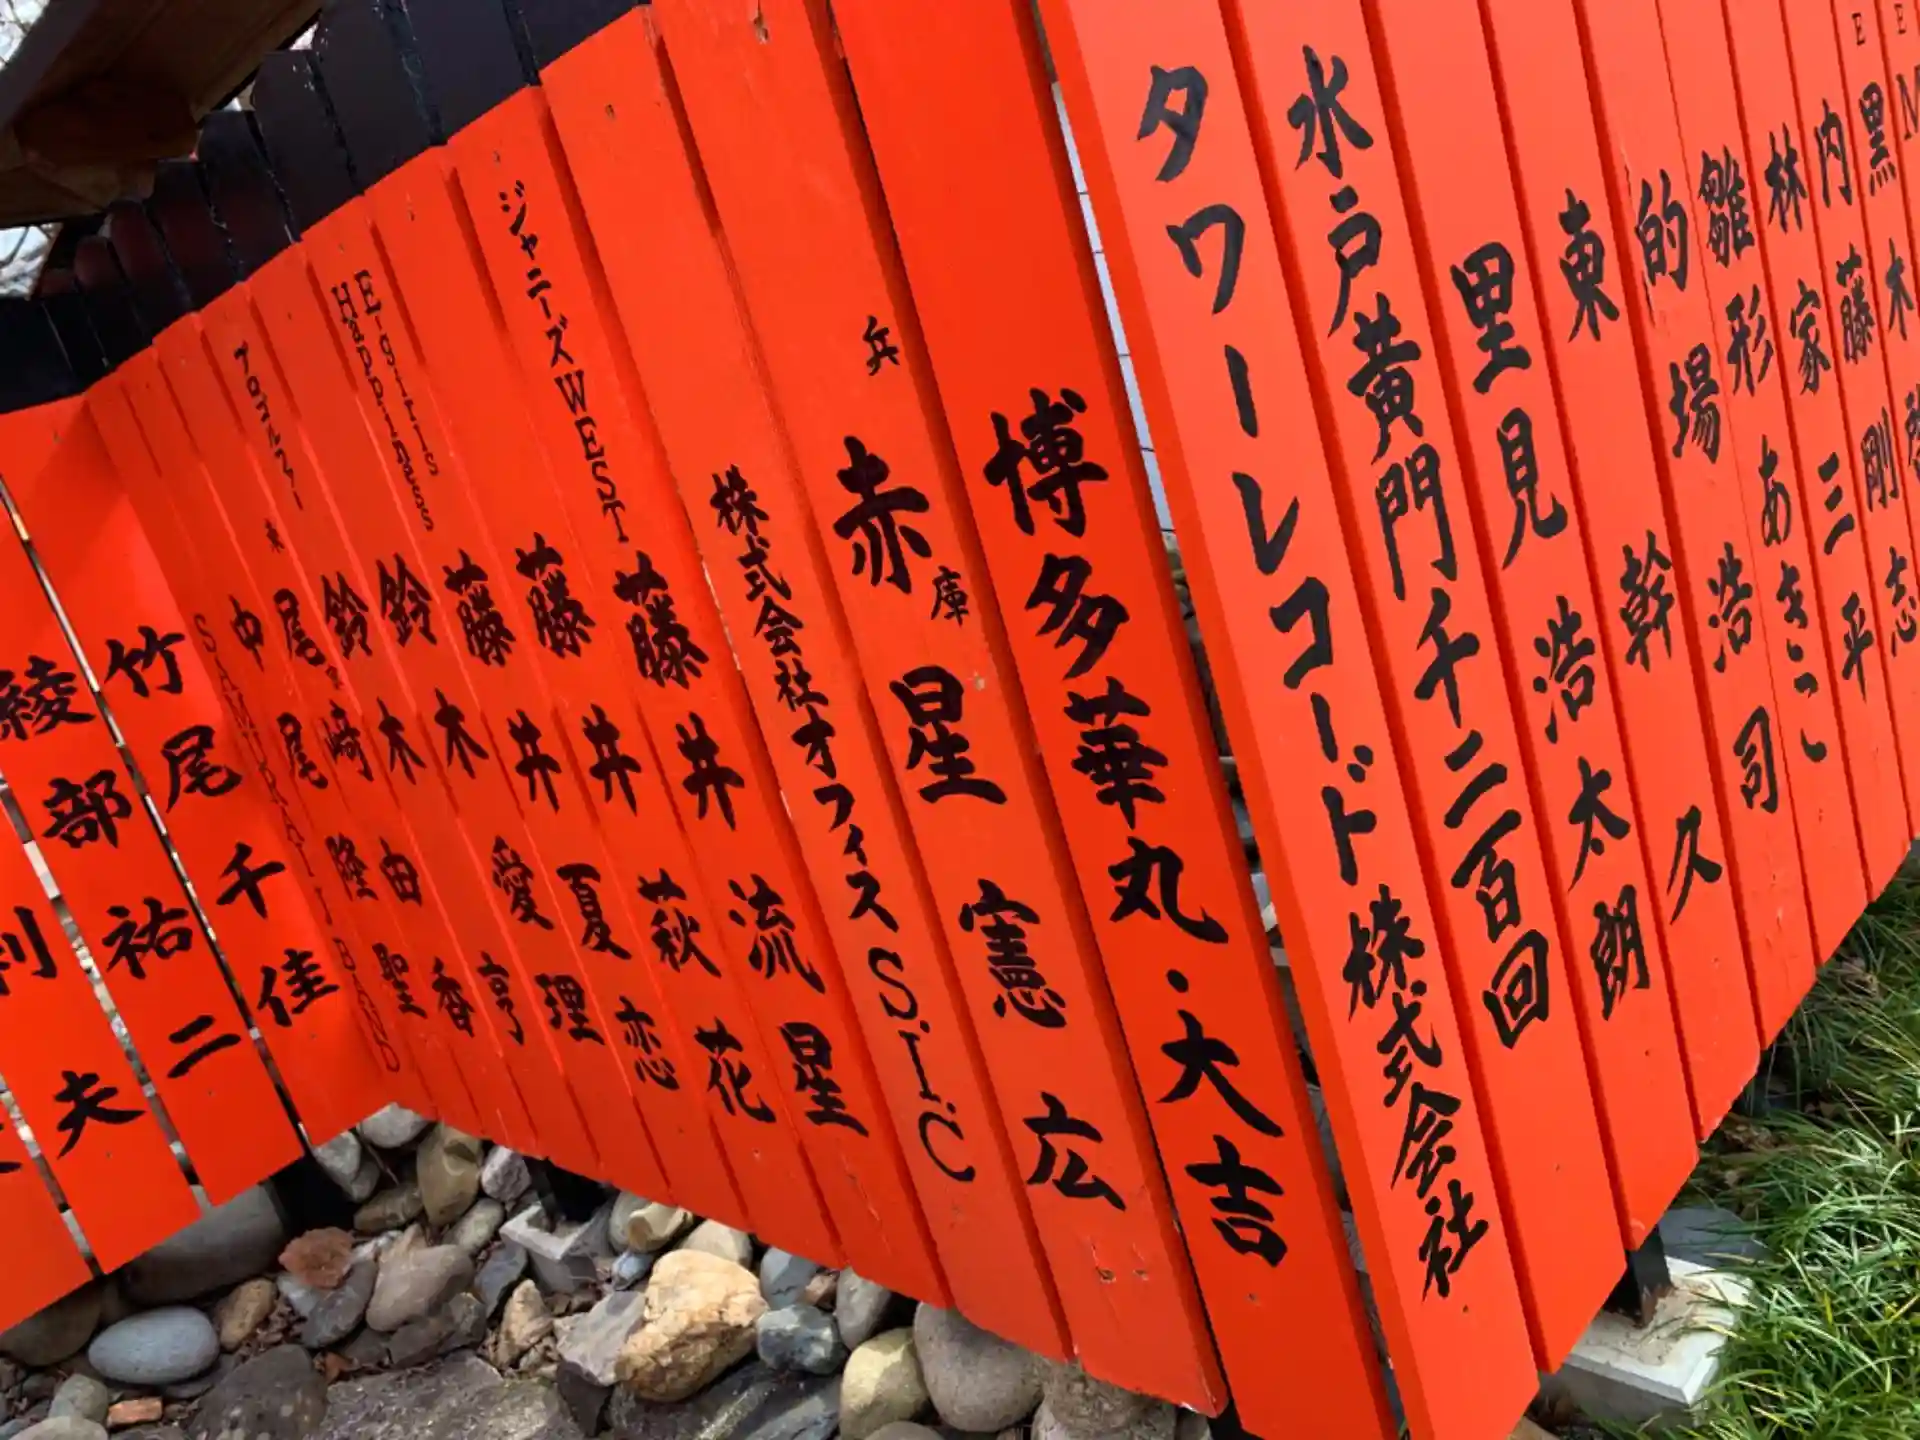 黒木啓
内藤剛志
林家三平
雛形あきこ
的場浩司
東幹久
里見浩太朗
水戸黄門千二百回
タワーレコード株式会社
博多華丸・大吉
兵庫
赤星憲広
株式会社オフィスS.I.C
ジャニーズWEST
藤井流星
藤井萩花
E-girls
Happiness
藤井夏恋
鈴木愛理
鈴木亨
尾崎由香
中尾隆聖
竹尾千佳
綾部祐二
夫